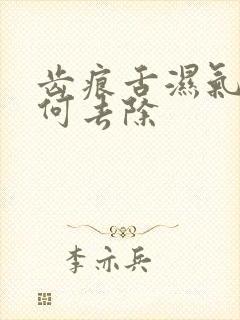 齿痕舌濕氣
何去除
李亦兵